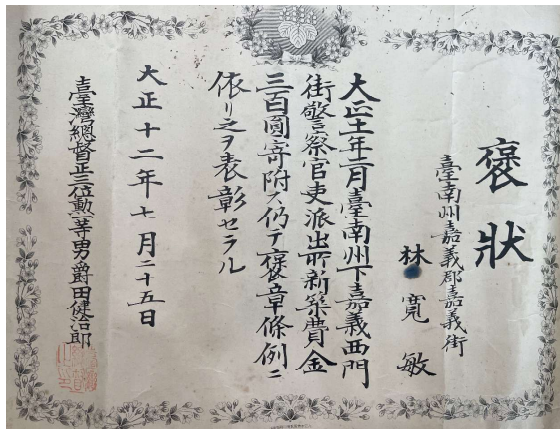 褒狀
臺南州嘉義郡嘉義街
林寬敏
大正十一年二月臺南州下嘉義西門
街警察官吏派出所新築費金
三百圓寄附ス仍テ褒章條例ニ
依リ之ヲ表彰セラル
大正十二年七月二十五日
臺灣總督正三位勲一等男爵田健治郎